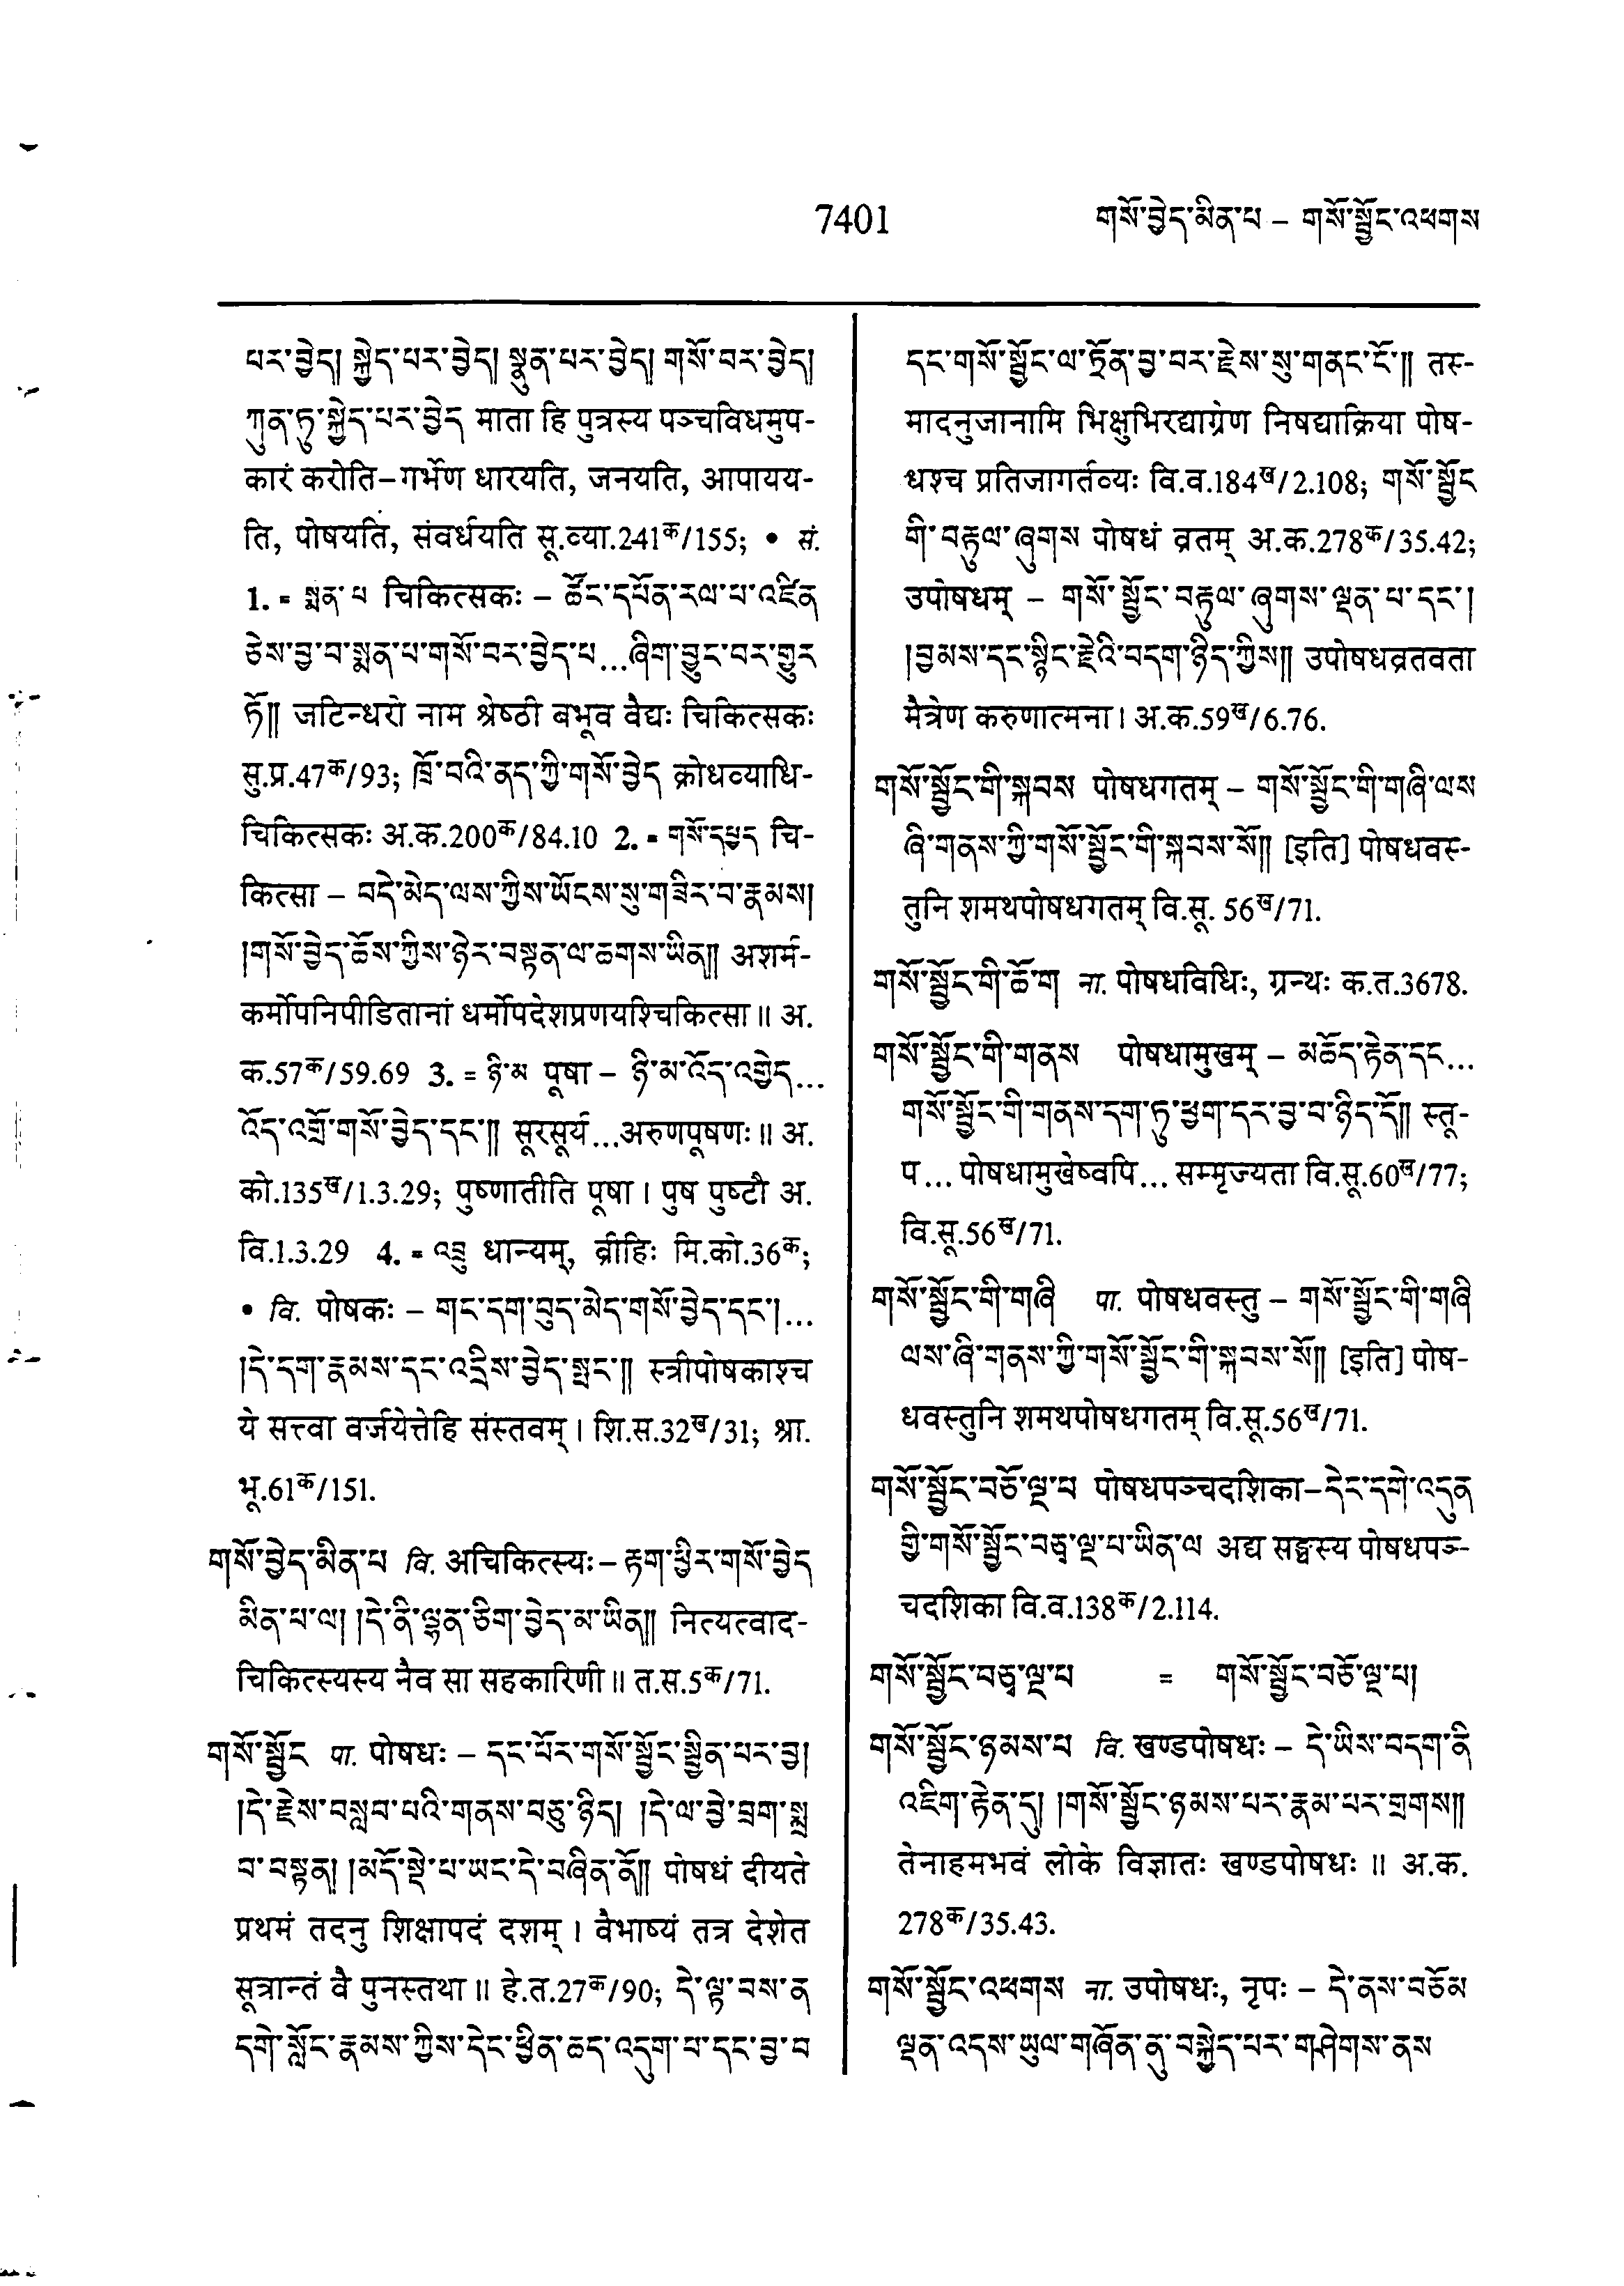 7401
གསོ་བྱེད་མིན་པ – གསོ་སྦྱོང་འཕགས
པར་བྱེད། སྐྱེད་པར་བྱེད། སྣུན་པར་བྱེད། གསོ་བར་བྱེད།
ཀུན་ཏུ་སྐྱེད་པར་བྱེད माता हि पुत्रस्य पञ्चविधमुप-
कारं करोति–गर्भेण धारयति, जनयति, आपायय-
ति, पोषयति, संवर्धयति सू.व्या.241क/155; • सं.
1. = སྨན་པ चिकित्सकः – ཚོང་དཔོན་རལ་པ་འཛིན
ཅེས་བྱ་བ་སྨན་པ་གསོ་བར་བྱེད་པ...ཞིག་བྱུང་བར་གྱུར
ཏོ།། जटिन्धरो नाम श्रेष्ठी बभूव वैद्यः चिकित्सकः
सु.प्र.47क/93; ཁྲོ་བའི་ནད་ཀྱི་གསོ་བྱེད क्रोधव्याधि-
चिकित्सकः अ.क.200क/84.10 2. = གསོ་དཔྱད चि-
कित्सा – བདེ་མེད་ལས་ཀྱིས་ཡོངས་སུ་གཟིར་བ་རྣམས།
།གསོ་བྱེད་ཆོས་ཀྱིས་ཉེར་བསྟན་ལ་ཆགས་ཡིན།། अशर्म-
कर्मोपनिपीडितानां धर्मोपदेशप्रणयश्चिकित्सा ॥ अ.
क.57क/59.69 3. = ཉི་མ पूषा – ཉི་མ་འོད་འགྱེད...
འོད་འགྲོ་གསོ་བྱེད་དང་།། सूरसूर्य...अरुणपूषणः ॥ अ.
को.135ख/1.3.29; पुष्णातीति पूषा । पुष पुष्टौ अ.
वि.1.3.29 4. = འབྲུ धान्यम्, व्रीहिः मि.को.36क;
• वि. पोषकः – གང་དག་བུད་མེད་གསོ་བྱེད་དང་།...
།དེ་དག་རྣམས་དང་འདྲིས་བྱེད་སྤང་།། स्त्रीपोषकाश्च
ये सत्त्वा वर्जयेत्तेहि संस्तवम् । शि.स.32ख/31; श्रा.
भू.61क/151.
གསོ་བྱེད་མིན་པ वि. अचिकित्स्यः – རྟག་ཕྱིར་གསོ་བྱེད
མིན་པ་ལ། །དེ་ནི་ལྷན་ཅིག་བྱེད་མ་ཡིན།། नित्यत्वाद-
चिकित्स्यस्य नैव सा सहकारिणी ॥ त.स.5क/71.
གསོ་སྦྱོང पा. पोषधः – དང་པོར་གསོ་སྦྱོང་སྦྱིན་པར་བྱ།
།དེ་རྗེས་བསླབ་པའི་གནས་བཅུ་ཉིད། །དེ་ལ་བྱེ་བྲག་སྨྲ
བ་བསྟན། །མདོ་སྡེ་པ་ཡང་དེ་བཞིན་ནོ།། पोषधं दीयते
प्रथमं तदनु शिक्षापदं दशम् । वैभाष्यं तत्र देशेत
सूत्रान्तं वै पुनस्तथा ॥ हे.त.27क/90; དེ་ལྟ་བས་ན
དགེ་སློང་རྣམས་ཀྱིས་དེང་ཕྱིན་ཆད་འདུག་པ་དང་བྱ་བ
དང་གསོ་སྦྱོང་ལ་ཏོན་བྱ་བར་རྗེས་སུ་གནང་ངོ་།། तस्-
मादनुजानामि भिक्षुभिरद्याग्रेण निषद्याक्रिया पोष-
धश्च प्रतिजागर्तव्यः वि.व.184ख/2.108; གསོ་སྦྱོང
གི་བརྟུལ་ཞུགས पोषधं व्रतम् अ.क.278क/35.42;
उपोषधम् – གསོ་སྦྱོང་བརྟུལ་ཞུགས་ལྡན་པ་དང་།
།བྱམས་དང་སྙིང་རྗེའི་བདག་ཉིད་ཀྱིས།། उपोषधव्रतवता
मैत्रेण करुणात्मना । अ.क.59ख/6.76.
གསོ་སྦྱོང་གི་སྐབས पोषधगतम् – གསོ་སྦྱོང་གི་གཞི་ལས
ཞི་གནས་ཀྱི་གསོ་སྦྱོང་གི་སྐབས་སོ།། [इति] पोषधवस्-
तुनि शमथपोषधगतम् वि.सू. 56ख/71.
གསོ་སྦྱོང་གི་ཆོ་ག ना. पोषधविधिः, ग्रन्थः क.त.3678.
གསོ་སྦྱོང་གི་གནས पोषधामुखम् – མཆོད་རྟེན་དང...
གསོ་སྦྱོང་གི་གནས་དག་ཏུ་ཕྱག་དར་བྱ་བ་ཉིད་དོ།། स्तू-
प... पोषधामुखेष्वपि... सम्मृज्यता वि.सू.60ख/77;
वि.सू.56ख/71.
གསོ་སྦྱོང་གི་གཞི पा. पोषधवस्तु – གསོ་སྦྱོང་གི་གཞི
ལས་ཞི་གནས་ཀྱི་གསོ་སྦྱོང་གི་སྐབས་སོ།། [इति] पोष-
धवस्तुनि शमथपोषधगतम् वि.सू.56ख/71.
གསོ་སྦྱོང་བཅོ་ལྔ་པ पोषधपञ्चदशिका–དེང་དགེ་འདུན
གྱི་གསོ་སྦྱོང་བཅྭ་ལྔ་པ་ཡིན་ལ अद्य सङ्घस्य पोषधपञ्-
चदशिका वि.व.138क/2.114.
གསོ་སྦྱོང་བཅྭ་ལྔ་པ = གསོ་སྦྱོང་བཅོ་ལྔ་པ།
གསོ་སྦྱོང་ཉམས་པ वि. खण्डपोषधः – དེ་ཡིས་བདག་ནི
འཇིག་རྟེན་དུ། །གསོ་སྦྱོང་ཉམས་པར་རྣམ་པར་གྲགས།།
तेनाहमभवं लोके विज्ञातः खण्डपोषधः ॥ अ.क.
278क/35.43.
གསོ་སྦྱོང་འཕགས ना. उपोषधः, नृपः – དེ་ནས་བཅོམ
ལྡན་འདས་ཡུལ་གཞོན་ནུ་བསྐྱེད་པར་གཤེགས་ནས